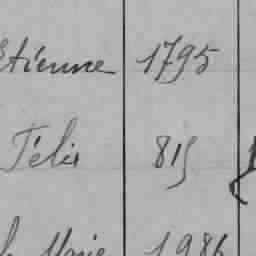 Etienne 1795
Félix 815
Marie 1986